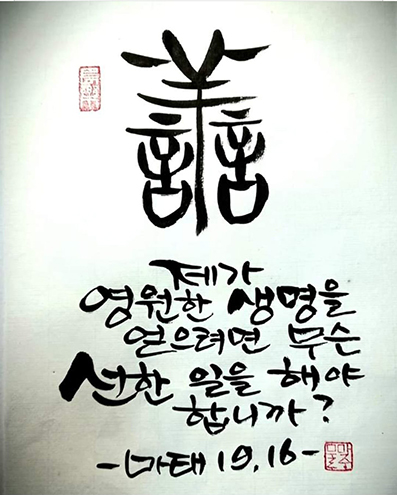 譱
제가
영원한 생명을
얻으려면 무슨
선한 일을 해야
합니까?
-마태 19,16-